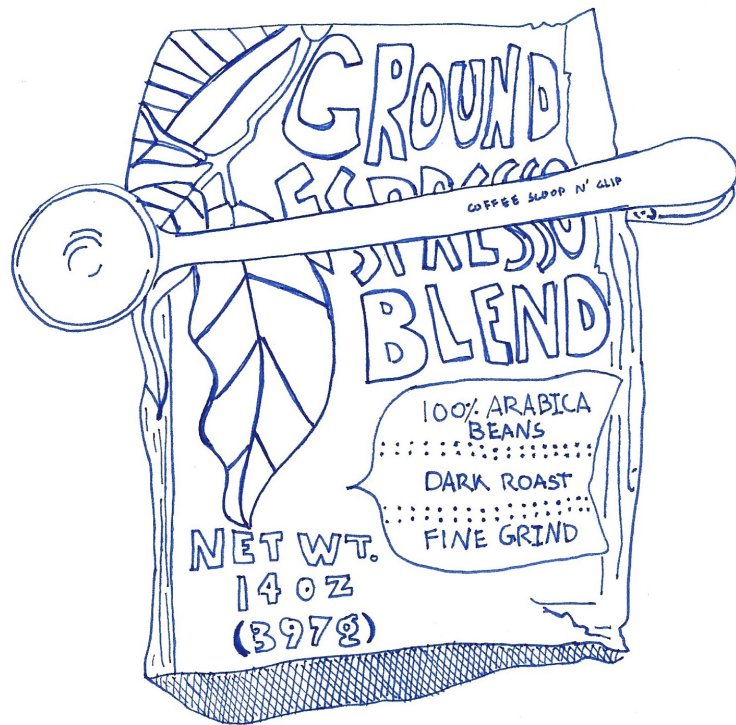 GROUND
ESPRESSO
COFFEE SCOOP N' CLIP
BLEND
100% ARABICA
BEANS
DARK ROAST
FINE GRIND
NET WT.
14 OZ
(397g)